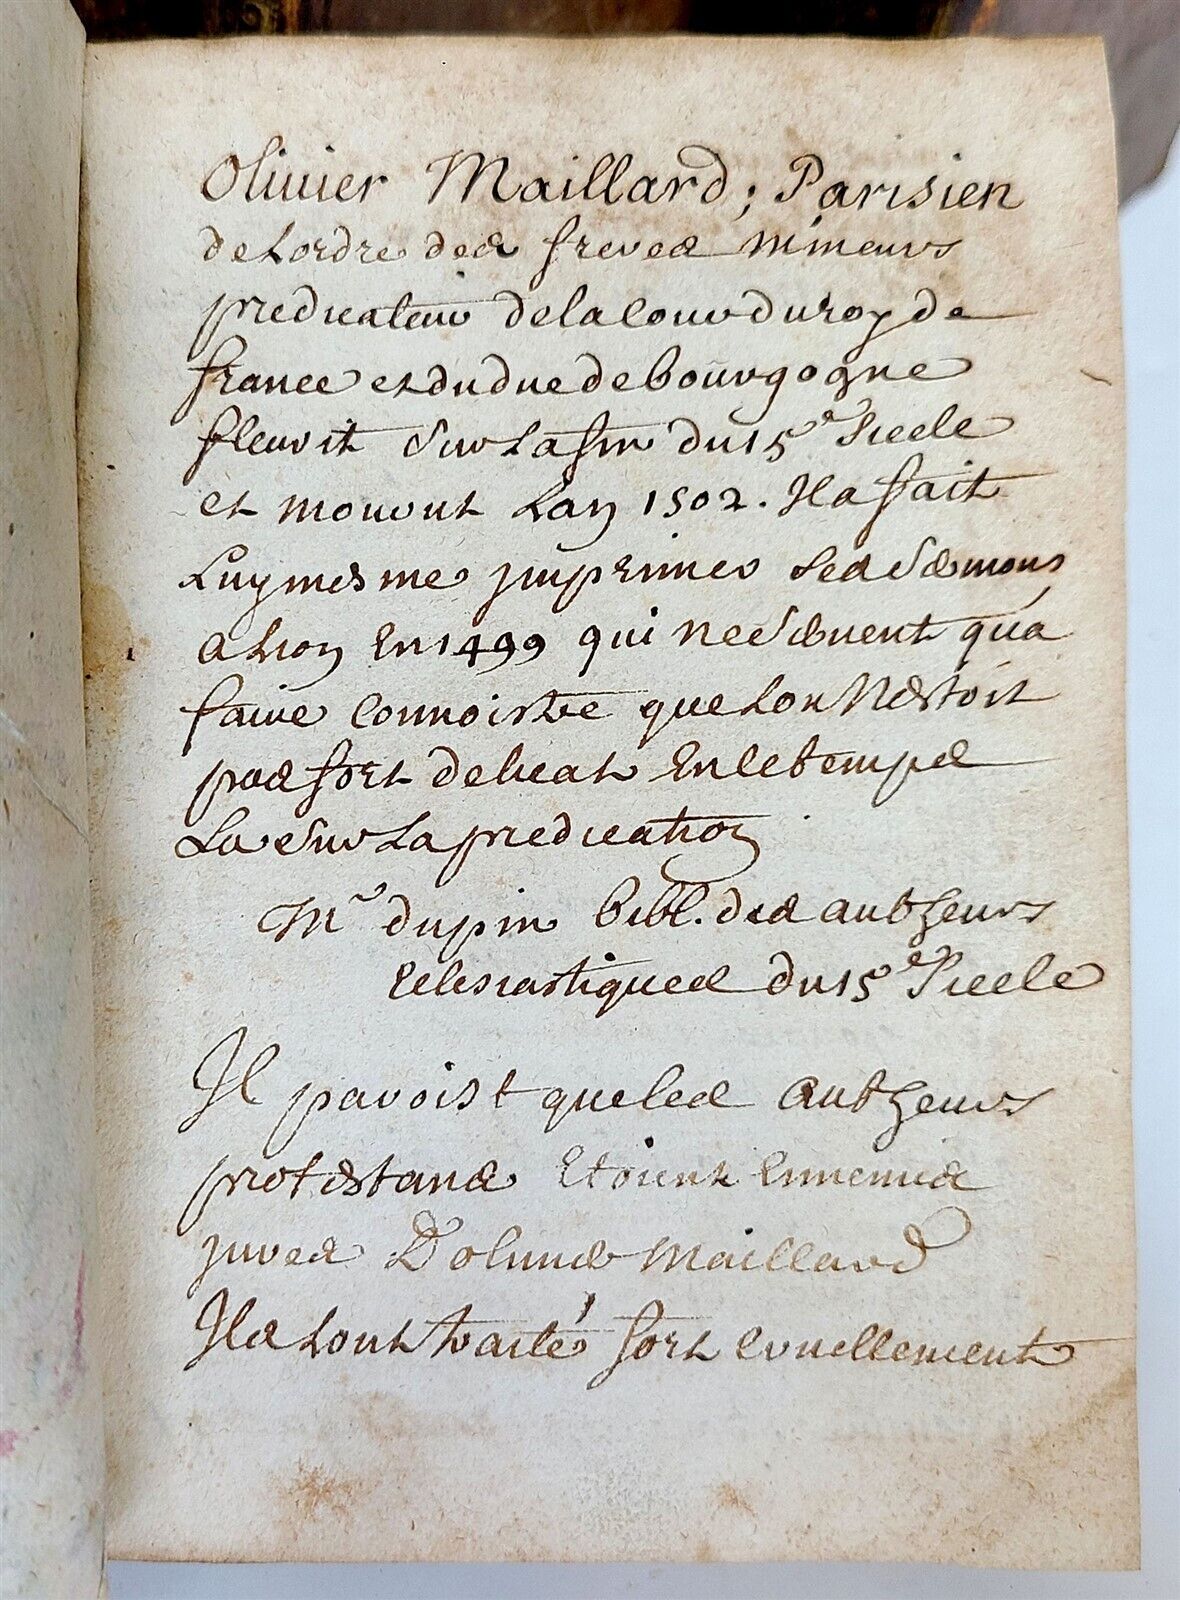 Olivier Maillard; Parisien
de Lordre des freres mineurs
predicateur de la Cour du roy de
france et du duc de bourgogne
fleurit sur La fin du 15e Siecle
et mourut Lan 1502. Il a fait
Luy mesme jmprimer ses sermons
a Lion En 1499 qui ne servent qua
faire connoistre que Lon Nestoit
pas fort delicat En ce temps
La sur La predication
Mr dupin bibl. des autheurs
Eclesiastiques du 15e Siecle
Il paroist que les autheurs
protestans Etoient Ennemis
jurez D'oliuier Maillard
Ils Lont traité fort cruellement